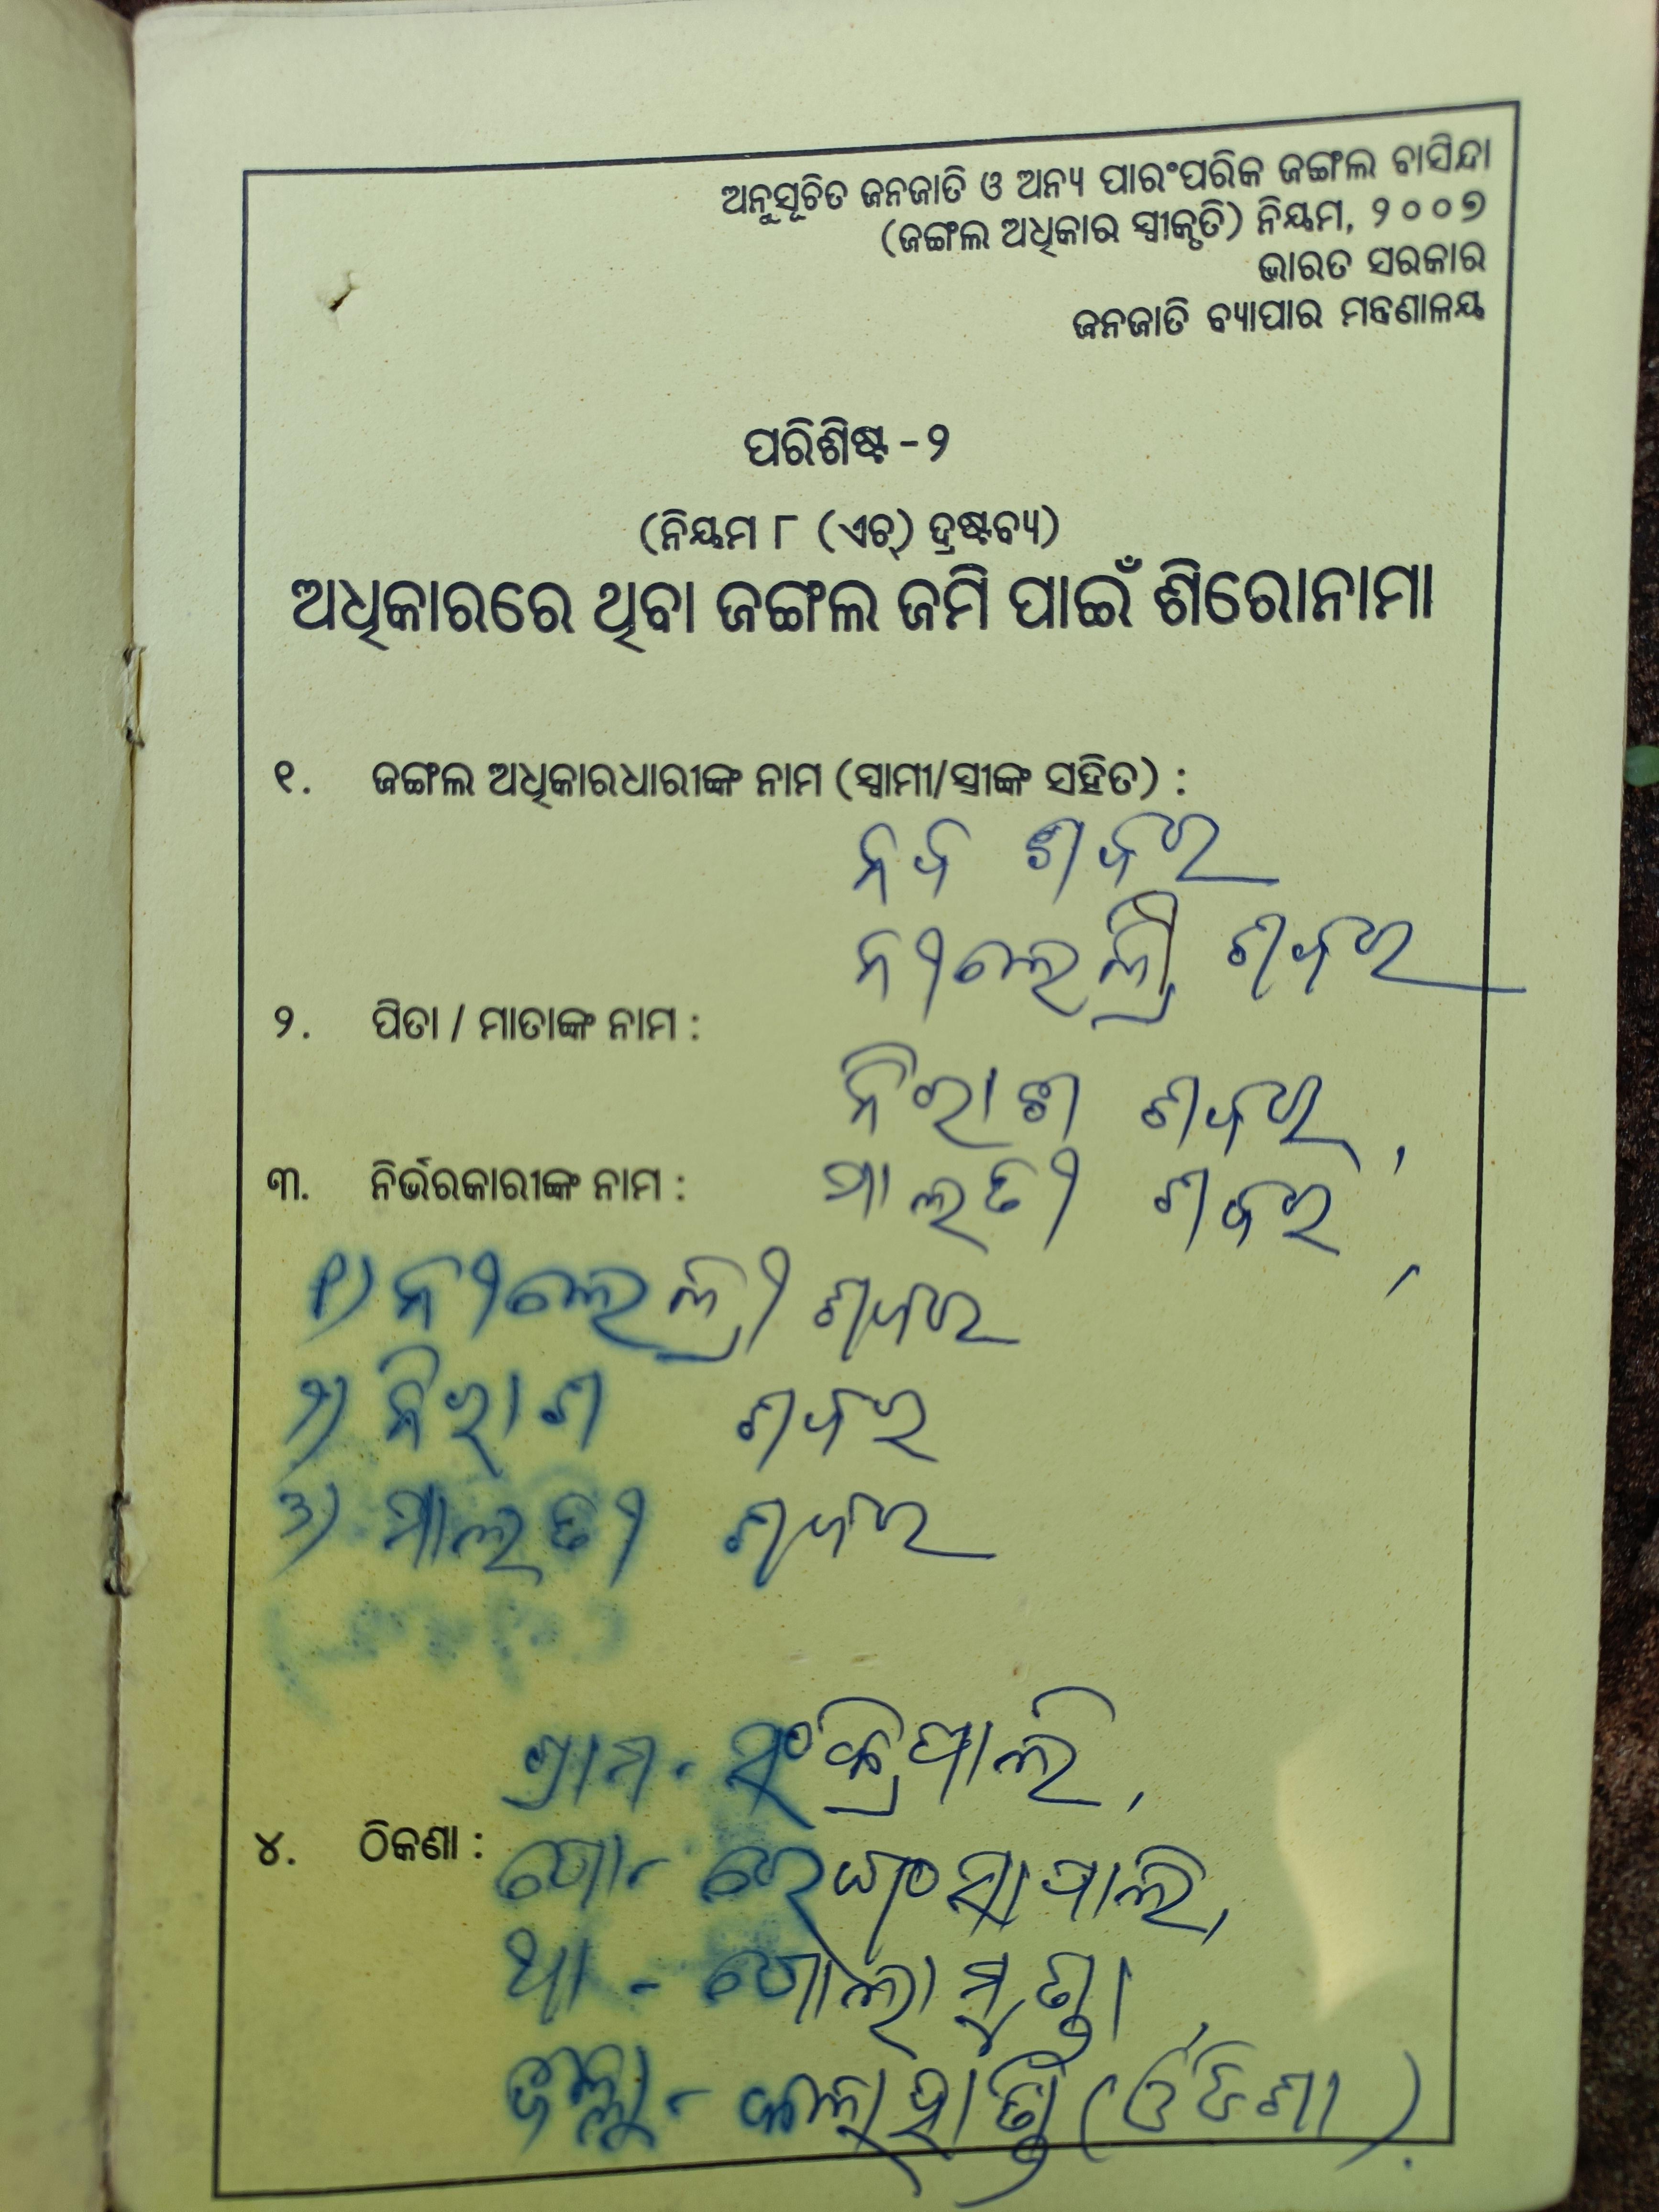 ଅନୁସୂଚିତ ଜନଜାତି ଓ ଅନ୍ୟ ପାରଂପରିକ ଜଙ୍ଗଲ ବାସିନ୍ଦା
(ଜଙ୍ଗଲ ଅଧିକାର ସ୍ୱୀକୃତି) ନିୟମ, ୨୦୦୭
ଭାରତ ସରକାର
ଜନଜାତି ବ୍ୟାପାର ମନ୍ତ୍ରଣାଳୟ
ପରିଶିଷ୍ଟ -୨
(ନିୟମ ୮ (ଏଚ୍) ଦ୍ରଷ୍ଟବ୍ୟ)
ଅଧିକାରରେ ଥିବା ଜଙ୍ଗଲ ଜମି ପାଇଁ ଶିରୋନାମା
୧. ଜଙ୍ଗଲ ଅଧିକାରଧାରୀଙ୍କ ନାମ (ସ୍ୱାମୀ/ସ୍ତ୍ରୀଙ୍କ ସହିତ) :
ଶବର
ଶବର
୨. ପିତା / ମାତାଙ୍କ ନାମ :
ନିରାଶ ଶବର,
୩. ନିର୍ଭରକାରୀଙ୍କ ନାମ :
ମାଲତୀ ଶବର,
୧) ଶବର
୨) ନିରାଶ ଶବର
୩) ମାଲତୀ ଶବର
ଗ୍ରାମ-
୪. ଠିକଣା :
ପୋ-
ଥା - ଗୋଲାମୁଣ୍ଡା
ଜିଲ୍ଲା- କଳାହାଣ୍ଡି (ଓଡିଶା).